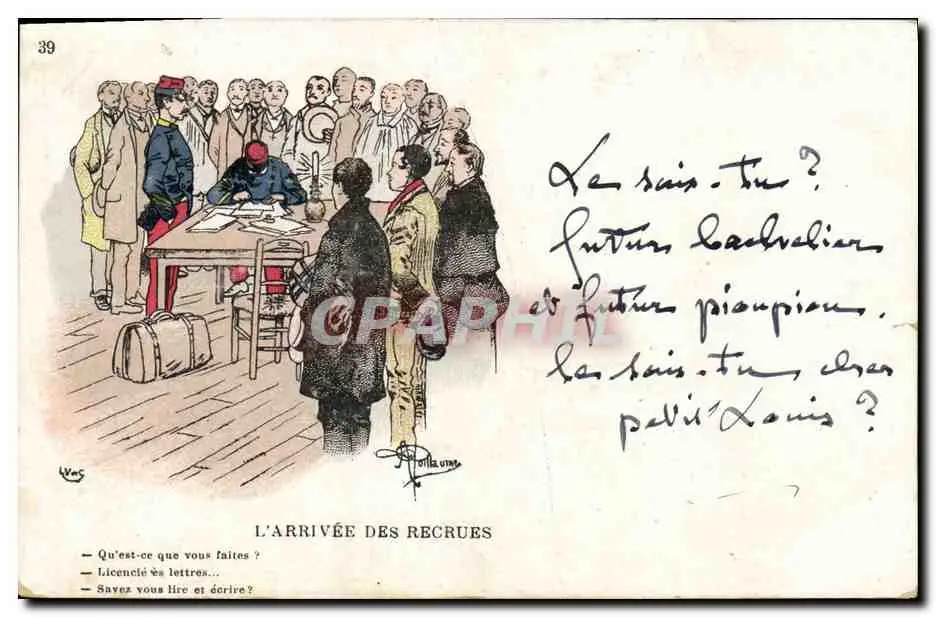 39
Le sais-tu?
futur bachelier
et futur pioupiou,
le sais-tu cher
petit Louis?
CPAPHIL
LVAS
A Guillaume
L'ARRIVÉE DES RECRUES
— Qu'est-ce que vous faites ?
— Licencié ès lettres...
— Savez vous lire et écrire ?